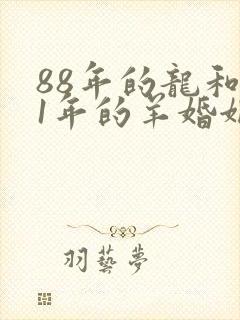 88年的龍和
1年的羊婚姻
羽藝夢